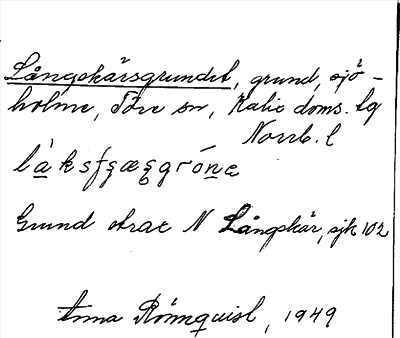 Långskärsgrundet, grund, sjö-
holme, Töre sn, Kalix doms. tg
Norrb. l
Grund strax N Långskär, sjk 102
Anna Rönnquist, 1949